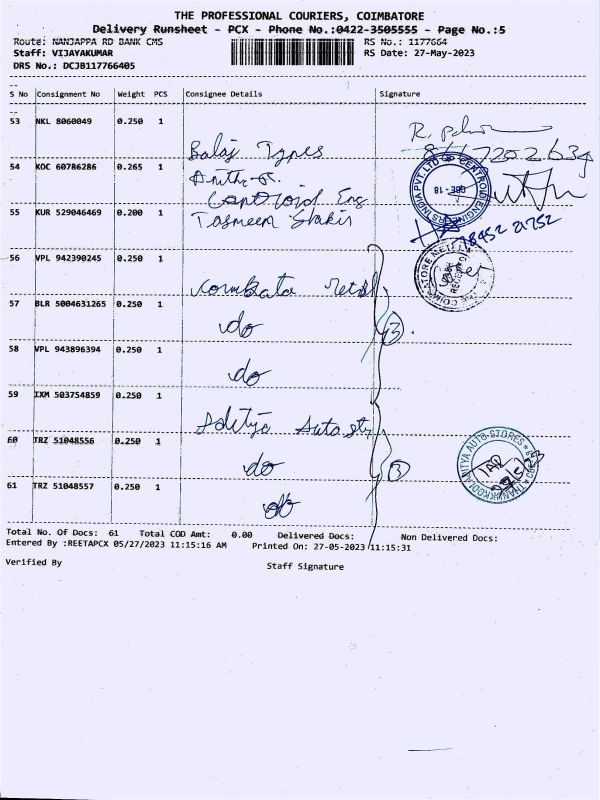 THE PROFESSIONAL COURIERS, COIMBATORE
Delivery Runsheet - PCX - Phone No.:0422-3505555 - Page No.:5
Route: NANJAPPA RD BANK CMS
RS No.: 1177664
Staff: VIJAYAKUMAR
RS Date: 27-May-2023
DRS No.: DCJB117766405
S No Consignment No Weight PCS Consignee Details Signature
53 NKL 8060049 0.250 1
Balaj Types
54 KOC 60786286 0.265 1
Centroid Eng
55 KUR 529046469 0.200 1
Tasmeen Shakir
78452 21752
56 VPL 942390245 0.250 1
57 BLR 5004631265 0.250 1
do
3
58 VPL 943896394 0.250 1
do
59 IXM 503754859 0.250 1
Aditya Auto str
60 TRZ 51048556 0.250 1
do
3
61 TRZ 51048557 0.250 1
do
Total No. Of Docs: 61 Total COD Amt: 0.00 Delivered Docs: Non Delivered Docs:
Entered By :REETAPCX 05/27/2023 11:15:16 AM Printed On: 27-05-2023 11:15:31
Verified By
Staff Signature